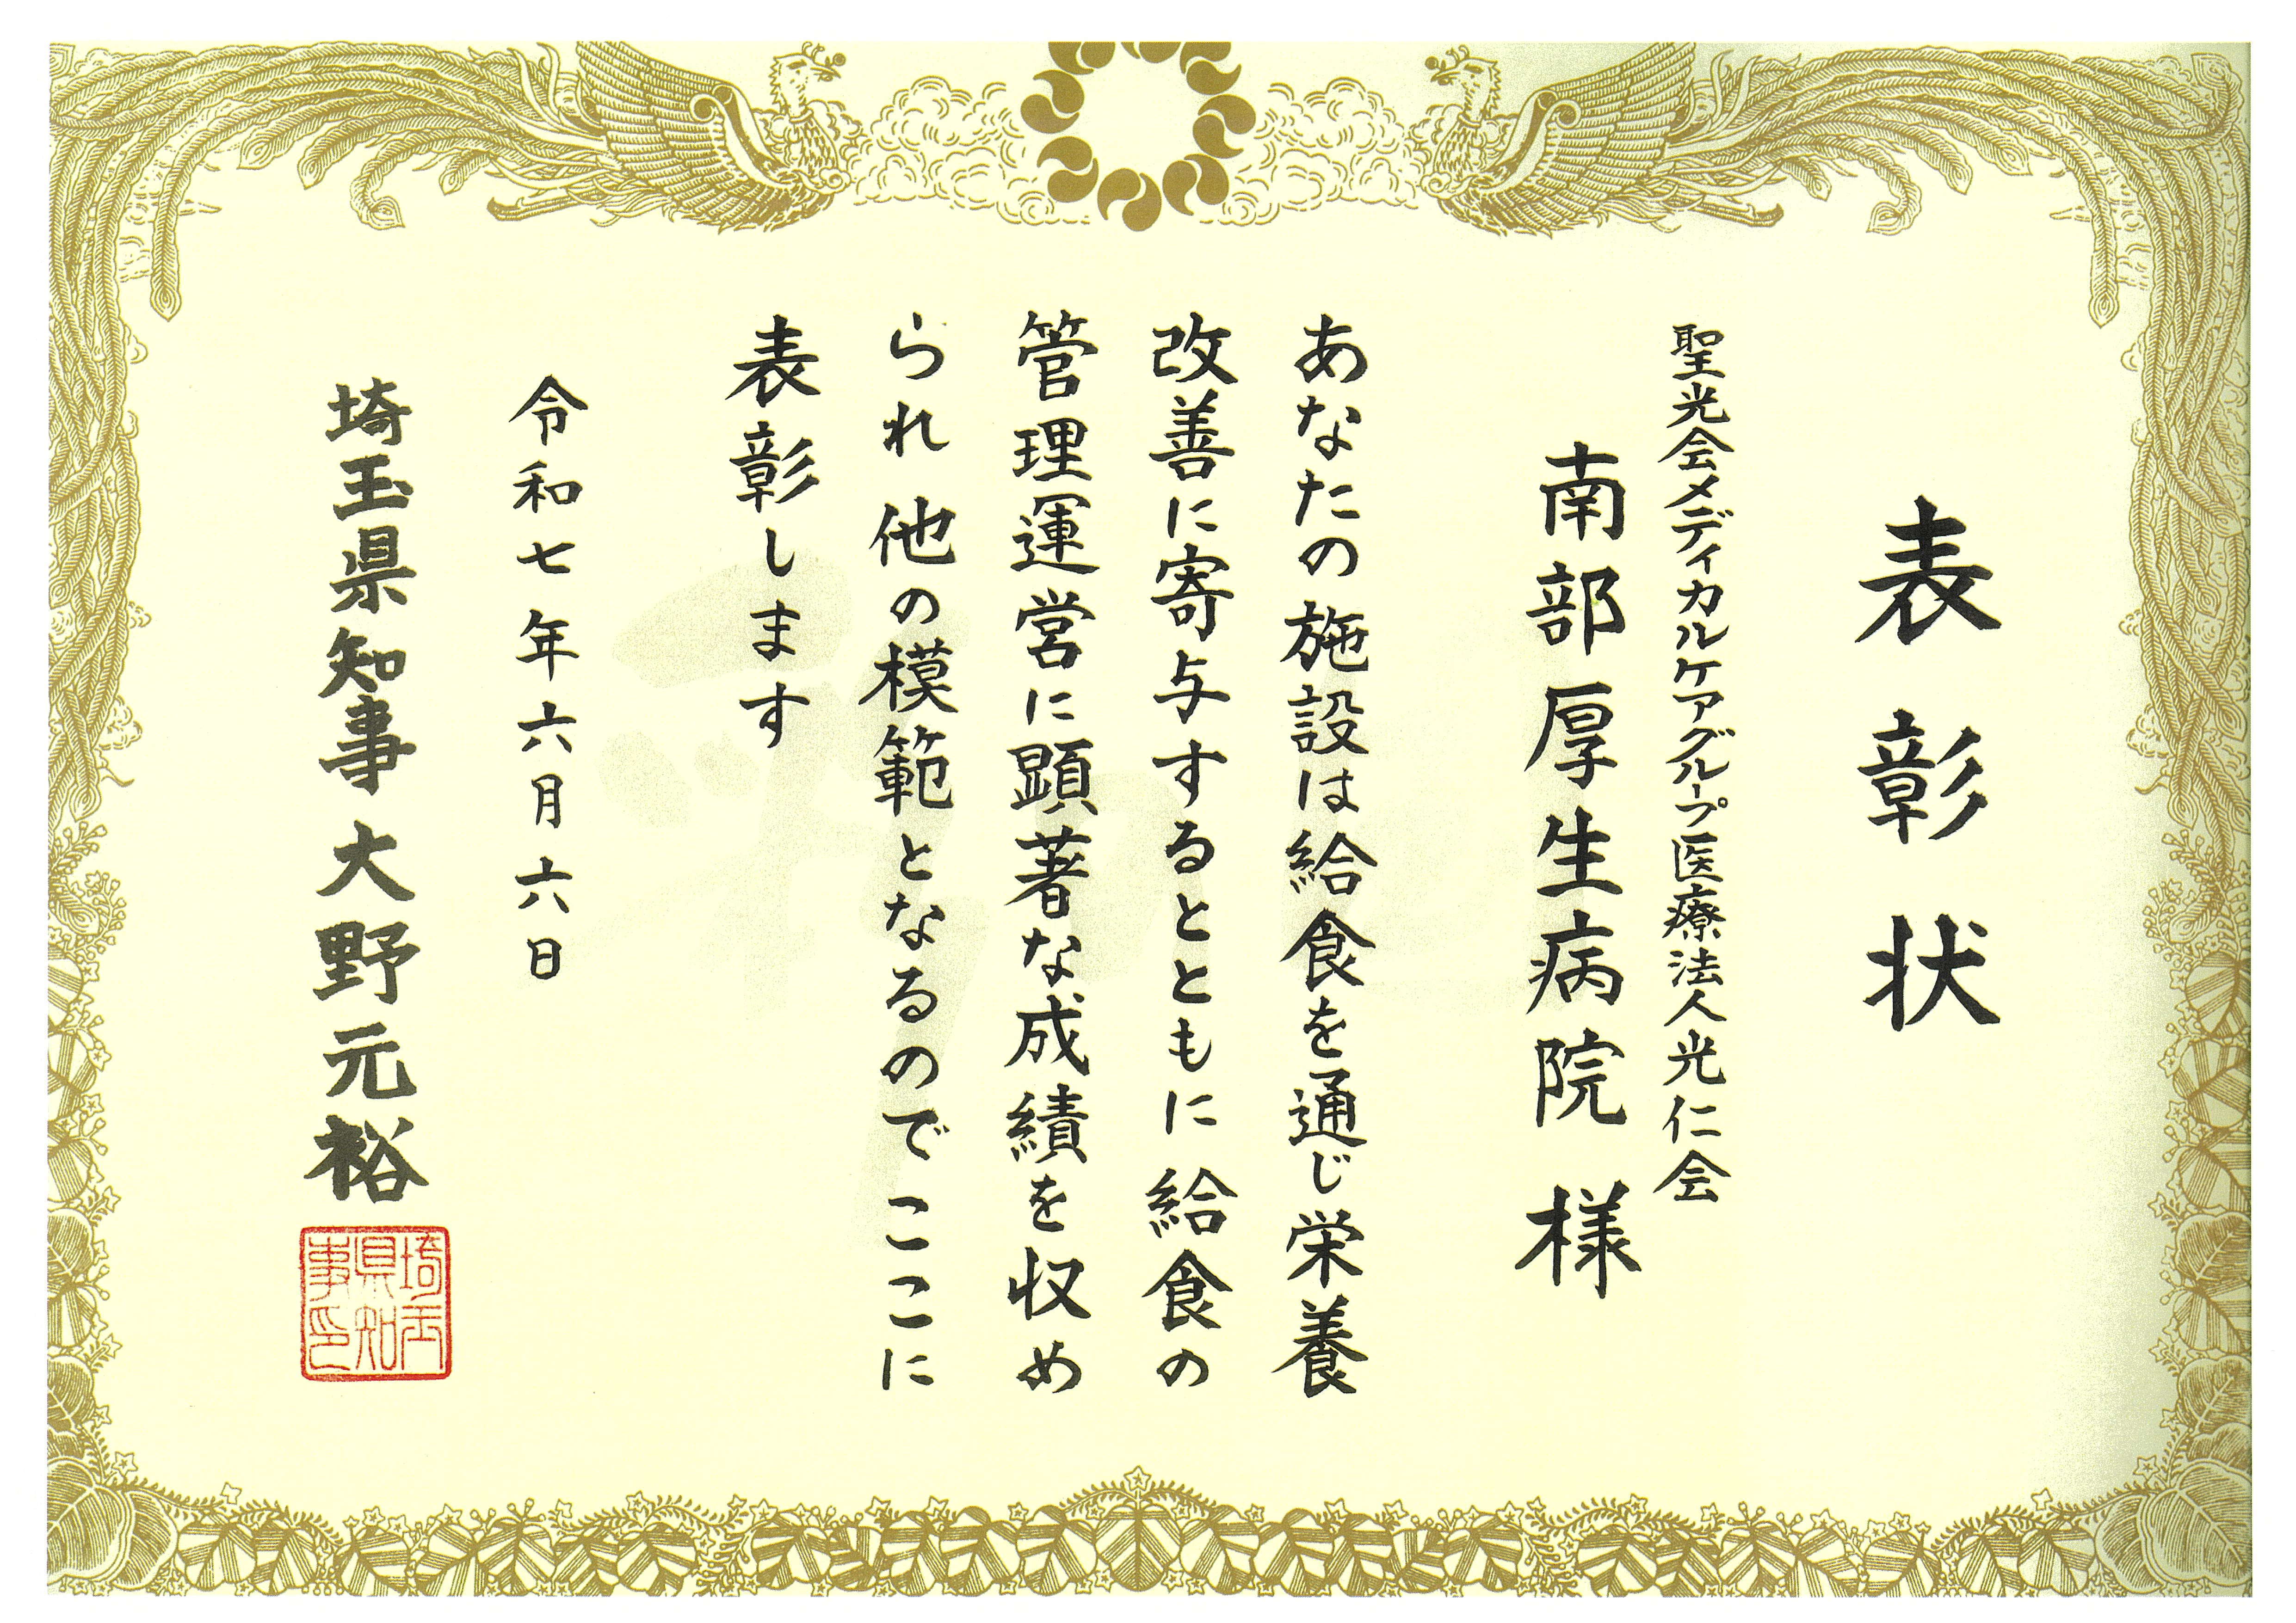 表彰状
聖光会メディカルケアグループ医療法人光仁会
南部厚生病院 様
あなたの施設は給食を通じ栄養
改善に寄与するとともに 給食の
管理運営に顕著な成績を収め
られ 他の模範となるのでここに
表彰します
令和七年六月六日
埼玉県知事 大野元裕
埼玉
県知
事印